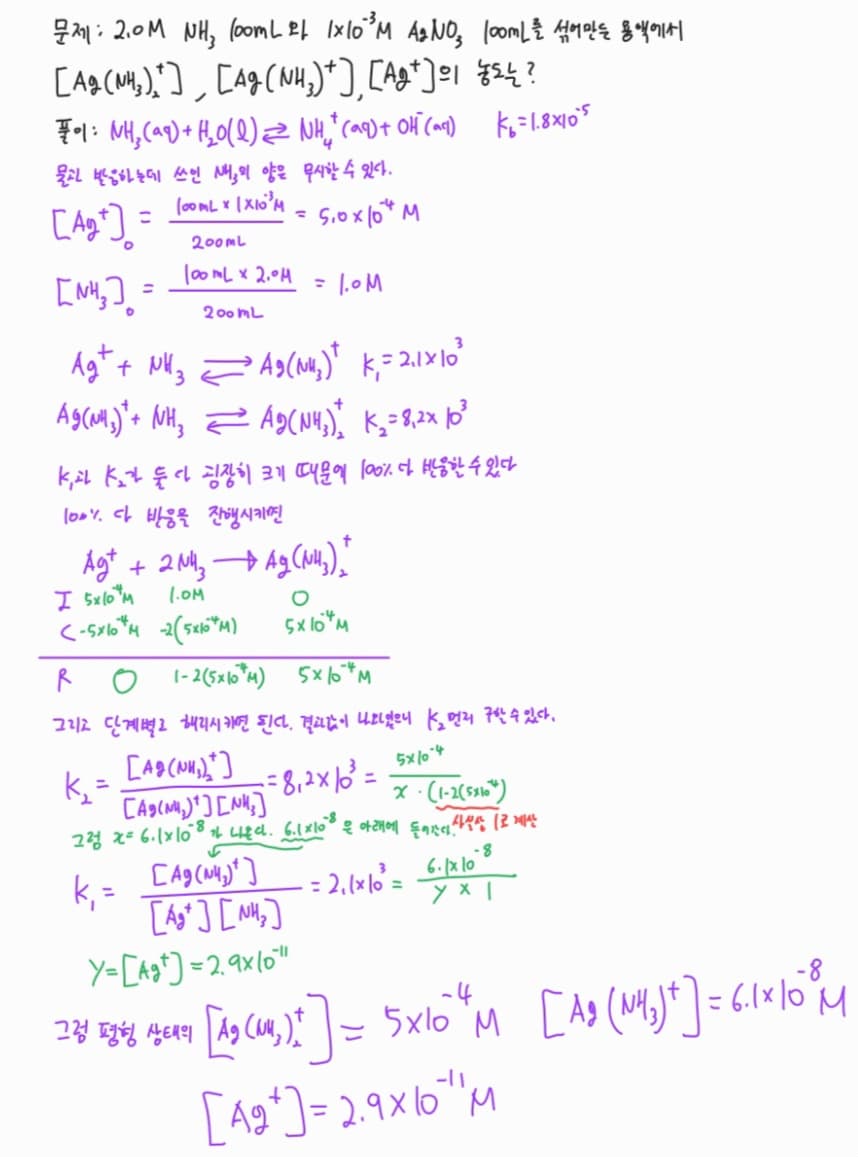 문제: 2.0M NH₃ 100mL와 1×10⁻³M AgNO₃ 100mL를 섞어만든 용액에서
[Ag(NH₃)₂⁺], [Ag(NH₃)⁺], [Ag⁺]의 농도는?
풀이: NH₃(aq)+H₂O(l)⇄NH₄⁺(aq)+OH⁻(aq) K_b=1.8×10⁻⁵
물과 반응하는데 쓰인 NH₃의 양은 무시할 수 있다.
[Ag⁺]₀ = (100mL × 1×10⁻³M)/200mL = 5.0×10⁻⁴ M
[NH₃]₀ = (100mL × 2.0M)/200mL = 1.0M
Ag⁺ + NH₃ ⇄ Ag(NH₃)⁺ K₁=2.1×10³
Ag(NH₃)⁺ + NH₃ ⇄ Ag(NH₃)₂⁺ K₂=8.2×10³
K₁과 K₂가 둘 다 굉장히 크기 때문에 100% 다 반응할 수 있다
100% 다 반응을 진행시키면
Ag⁺ + 2NH₃ → Ag(NH₃)₂⁺
I 5×10⁻⁴M 1.0M 0
C -5×10⁻⁴M -2(5×10⁻⁴M) 5×10⁻⁴M
R 0 1-2(5×10⁻⁴M) 5×10⁻⁴M
그리고 단계별로 해리시키면 된다. 결과값이 나와있으니 K₂먼저 구할 수 있다.
K₂ = [Ag(NH₃)₂⁺]/([Ag(NH₃)⁺][NH₃]) = 8.2×10³ = 5×10⁻⁴/(x·(1-2(5×10⁻⁴)))
사실상 1로 계산
그럼 x=6.1×10⁻⁸가 나온다. 6.1×10⁻⁸은 아래에 들어간다.
K₁ = [Ag(NH₃)⁺]/([Ag⁺][NH₃]) = 2.1×10³ = 6.1×10⁻⁸/(y × 1)
y=[Ag⁺]=2.9×10⁻¹¹
그럼 평형 상태의 [Ag(NH₃)₂⁺] = 5×10⁻⁴ M [Ag(NH₃)⁺]=6.1×10⁻⁸M
[Ag⁺]=2.9×10⁻¹¹M